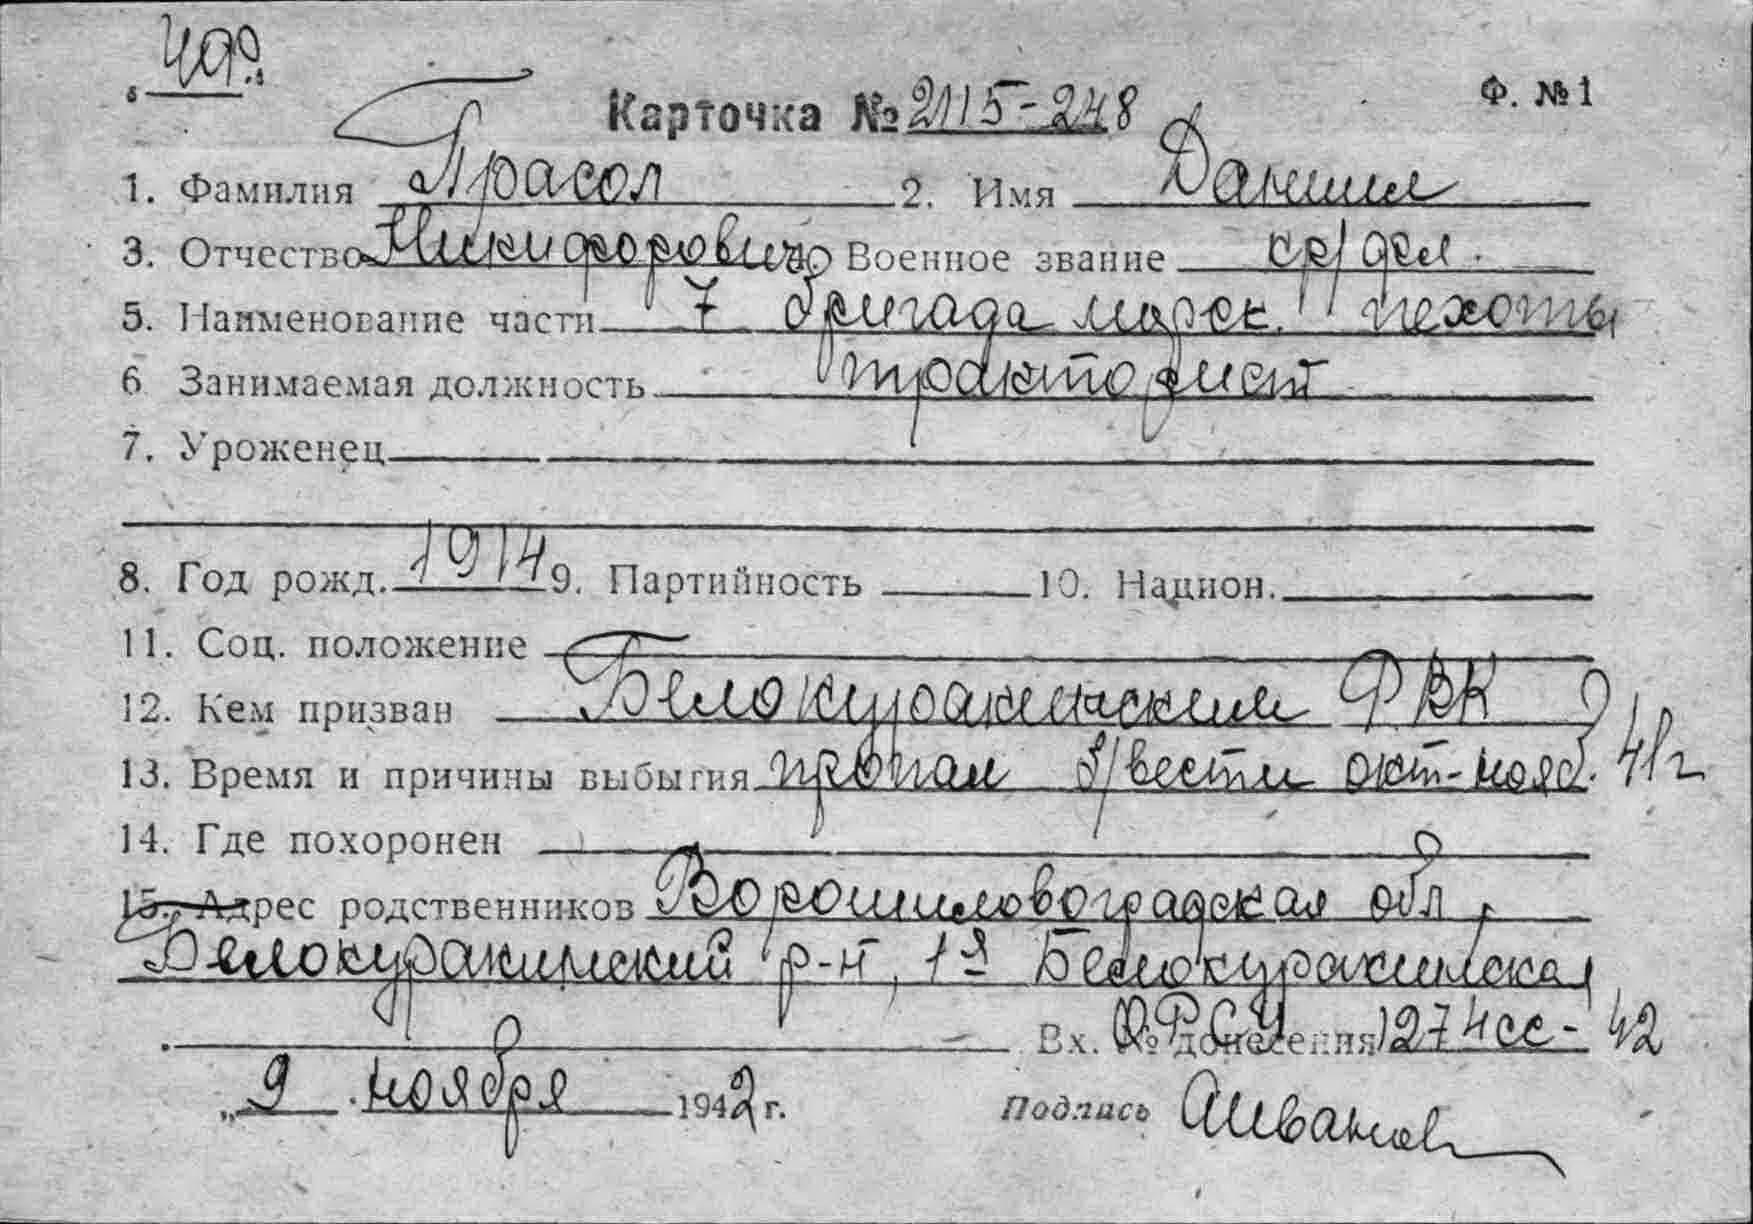 Ф. №1
Карточка № 2115-248
1. Фамилия Прасол 2. Имя Даниил
3. Отчество Никифорович Военное звание кр/фл.
5. Наименование части 7 бригада морск. пехоты
6 Занимаемая должность тракторист
7. Уроженец
8. Год рожд. 1914 9. Партийность 10. Национ.
11. Соц. положение
12. Кем призван Белокуракинским РВК
13. Время и причины выбытия пропал б/вести окт-нояб. 41г
14. Где похоронен
15. Адрес родственников Ворошиловоградская обл,
Белокуракинский р-н, 1я Белокуракинская
Вх. № донесения 1274сс-42
„9 ноября 1942 г. Подпись АИванов